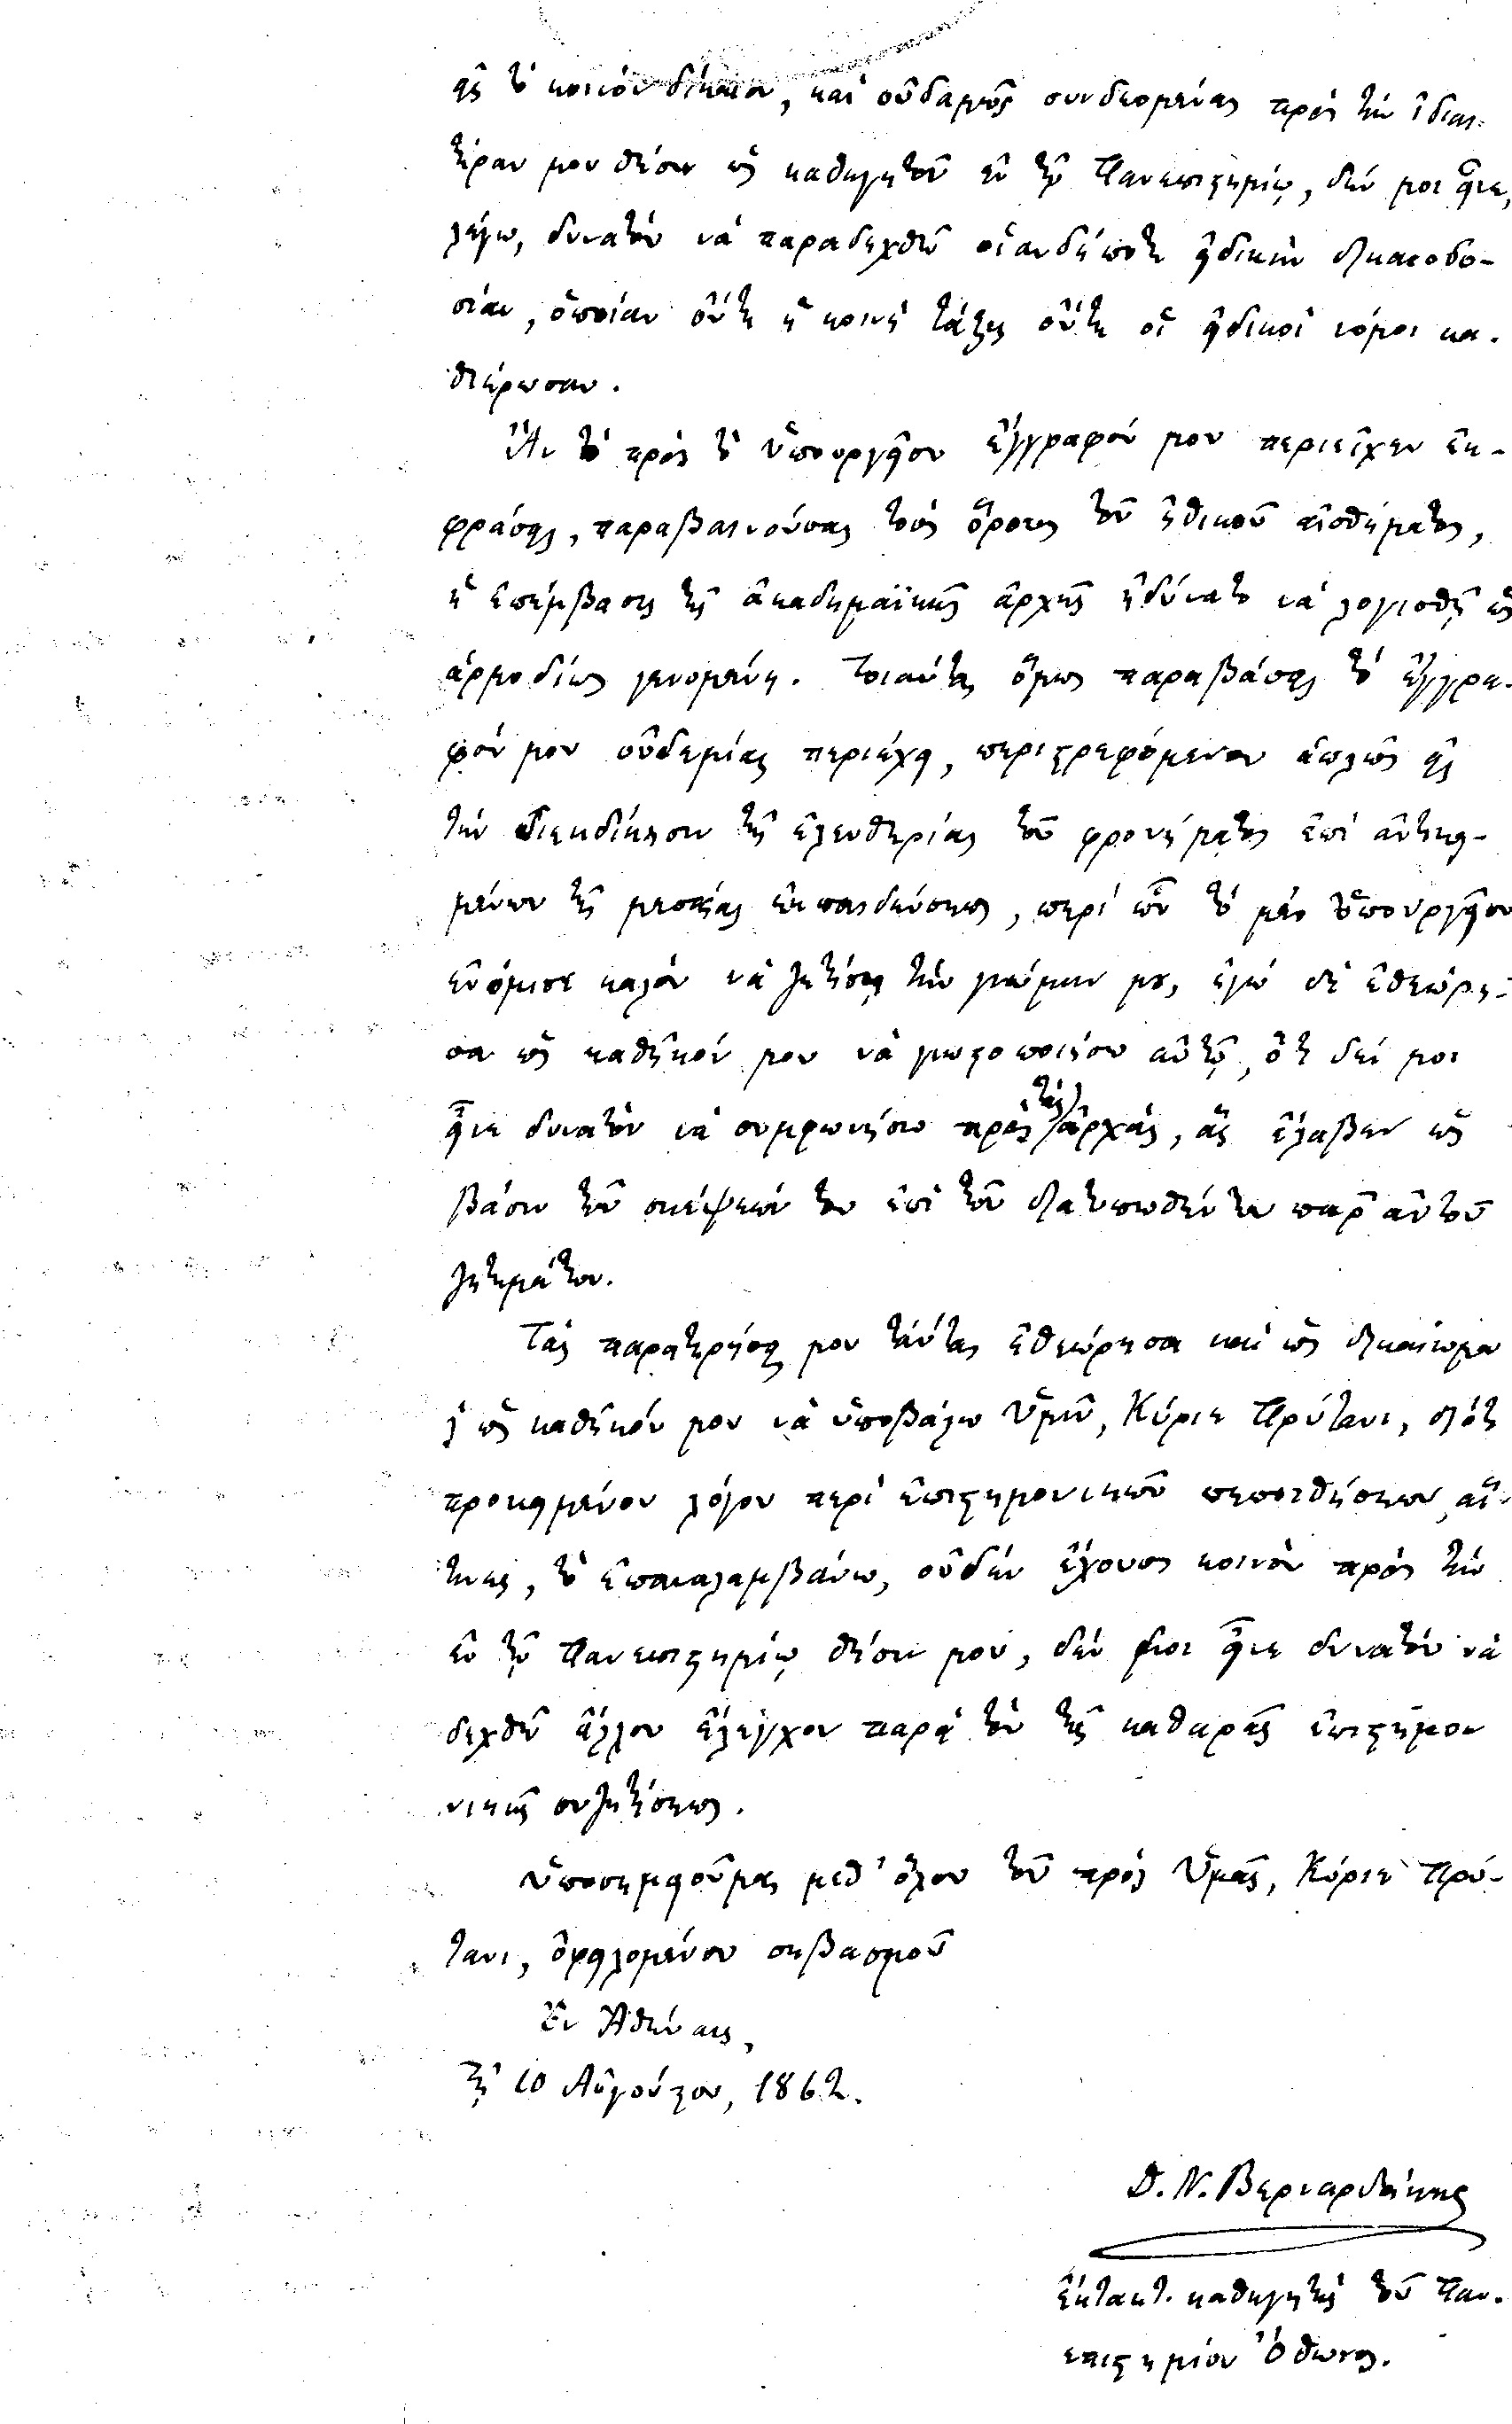 εἰς τὸ κοινὸν δίκαιον, καὶ οὐδαμῶς συνδεομένας πρὸς τὴν ἰδιαι-
τέραν μου θέσιν ὡς καθηγητοῦ ἐν τῷ Πανεπιστημίῳ, δέν μοι εἶνε,
λέγω, δυνατὸν νὰ παραδεχθῶ οἱανδήποτε εἰδικὴν δικαιοδο-
σίαν, ὁποίαν οὔτε ἡ κοινὴ τάξις οὔτε οἱ εἰδικοὶ νόμοι κα-
θιέρωσαν.
Ἂν τὸ πρὸς τὸ ὑπουργεῖον ἔγγραφόν μου περιεῖχεν ἐκ-
φράσεις, παραβαινούσας τοὺς ὅρους τοῦ ἠθικοῦ αἰσθήματος,
ἡ ἐπέμβασις τῆς ἀκαδημαϊκῆς ἀρχῆς ἠδύνατο νὰ λογισθῇ ὡς
ἁρμοδίως γενομένη. Τοιαύτας ὅμως παραβάσεις τὸ ἔγγρα-
φόν μου οὐδεμίας περιέχει, περιστρεφόμενον ἁπλῶς εἰς
τὴν διεκδίκησιν τῆς ἐλευθερίας τοῦ φρονήματος ἐπὶ ἀντικει-
μένων τῆς μεσαίας ἐκπαιδεύσεως, περὶ ὧν τὸ μὲν ὑπουργεῖον
ἐνόμισε καλὸν νὰ ζητήσῃ τὴν γνώμην μου, ἐγὼ δὲ ἐθεώρη-
σα ὡς καθῆκόν μου νὰ γνωστοποιήσω αὐτῷ, ὅτι δέν μοι
εἶνε δυνατὸν νὰ συμφωνήσω πρὸς τὰς ἀρχάς, ἃς ἔλαβεν ὡς
βάσιν τῶν σκέψεών του ἐπὶ τῶν διατυπωθέντων παρ' αὐτοῦ
ζητημάτων.
Τὰς παρατηρήσεις μου ταύτας ἐθεώρησα καὶ ὡς δικαίωμα
ϗ ὡς καθῆκόν μου νὰ ὑποβάλω Ὑμῖν, Κύριε Πρύτανι, διότι
προκειμένου λόγου περὶ ἐπιστημονικῶν πεποιθήσεων, αἵ-
τινες, τὸ ἐπαναλαμβάνω, οὐδὲν ἔχουσι κοινὸν πρὸς τὴν
ἐν τῷ Πανεπιστημίῳ θέσιν μου, δέν μοι εἶνε δυνατὸν νὰ
δεχθῶ ἄλλον ἔλεγχον παρὰ τὸν τῆς καθαρᾶς ἐπιστημο-
νικῆς συζητήσεως.
Ὑποσημειοῦμαι μεθ' ὅλου τοῦ πρὸς Ὑμᾶς, Κύριε Πρύ-
τανι, ὀφειλομένου σεβασμοῦ
Ἐν Ἀθήναις,
τῇ 10 Αὐγούστου, 1862.
Δ. Ν. Βερναρδάκης
ἔκτακτ. καθηγητὴς τοῦ Παν-
επιστημίου Ὄθωνος.